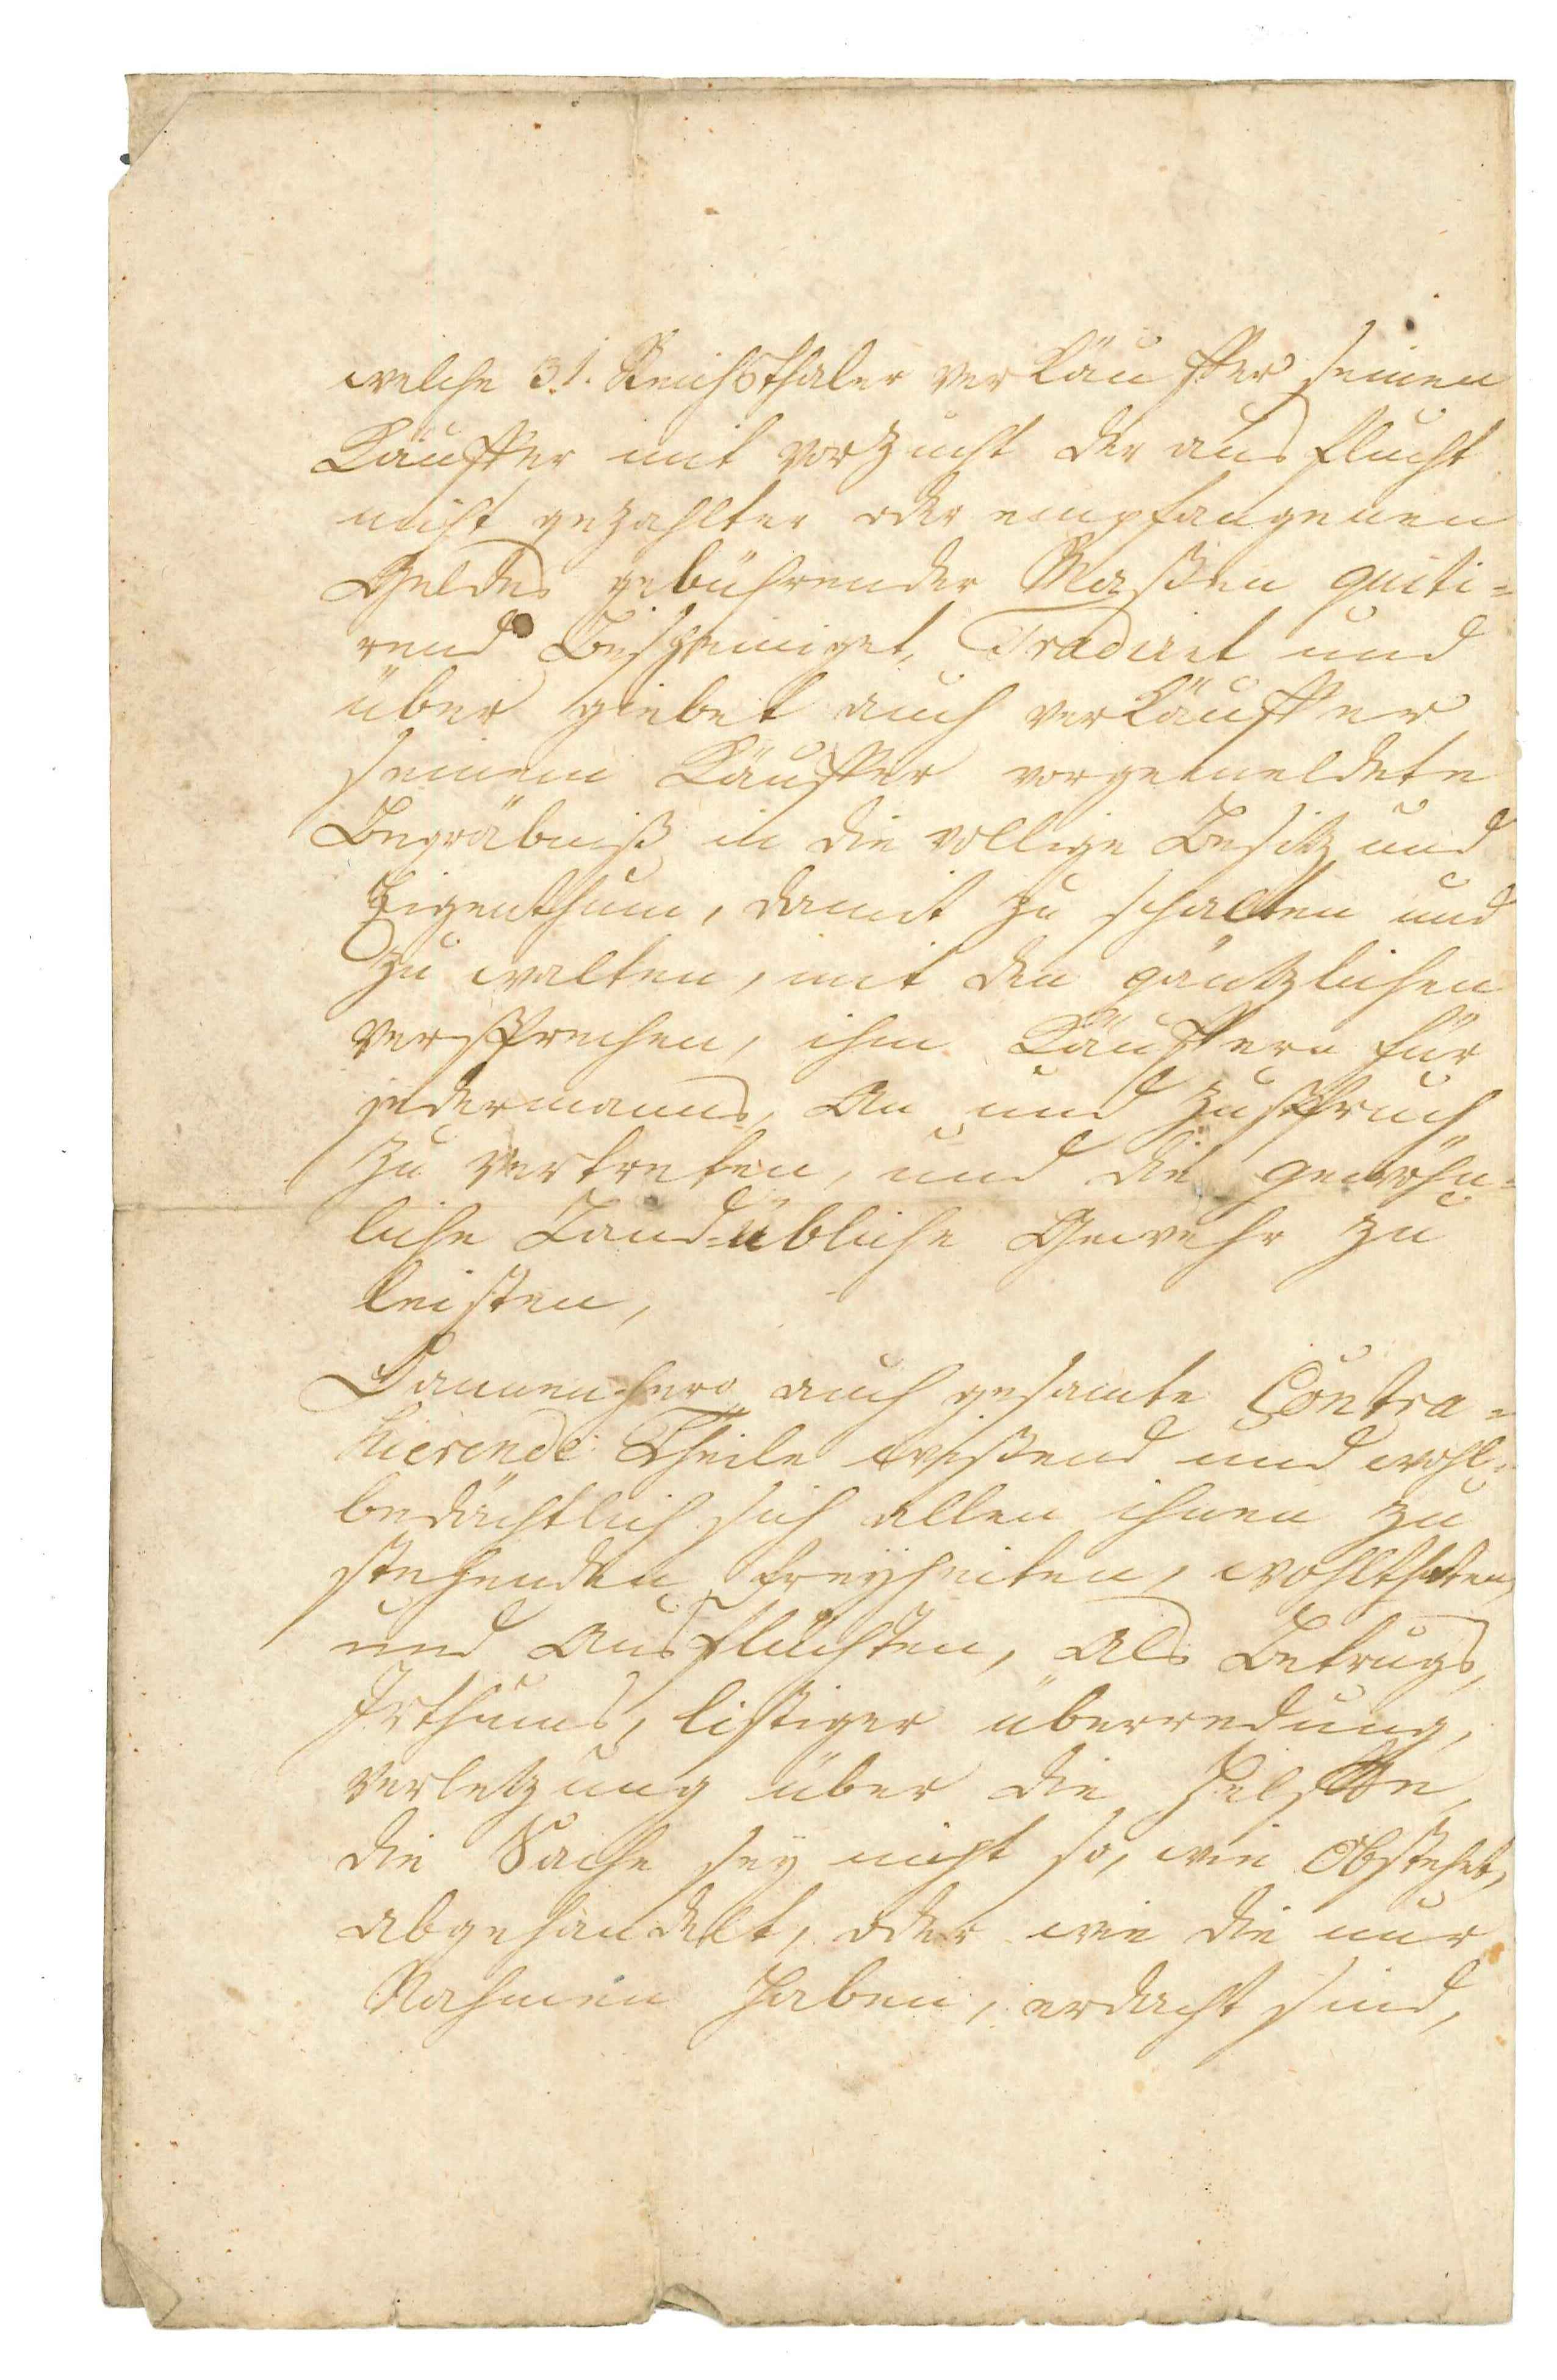 welche 31. Reichsthaler verkäuffer seinen
Käuffer mit vorzucht der aus flucht
nicht gezahlter oder empfangenen
Geldes gebührender Maßen quiti=
rend Bescheiniget, Tradiret und
über giebet auch verkäuffer
seinem Käuffer vorgemeldete
Begräbniß in die vollige Besitz und
Eigenthum, damit zu schalten und
zu walten, mit den gäntzlichen
versprechen, ihm Käuffern für
jedermanns, An und Zuspruch
zu vertreten, und die gewöhn=
liche Land=übliche Gewehr zu
leisten,
Dannenhero auch gesamte Contra=
hierende Theile wißend und wohl=
bedächtlich sich allen ihnen zu
stehenden freyheiten, wohlthaten,
und Ausflüchten, Als Betrugs,
Irthums, listiger überredung,
verletzung über die Helffte,
die Sache sey nicht so, wie Obstehet,
abgehandelt, oder wie die nur
Nahmen haben, erdacht sind,